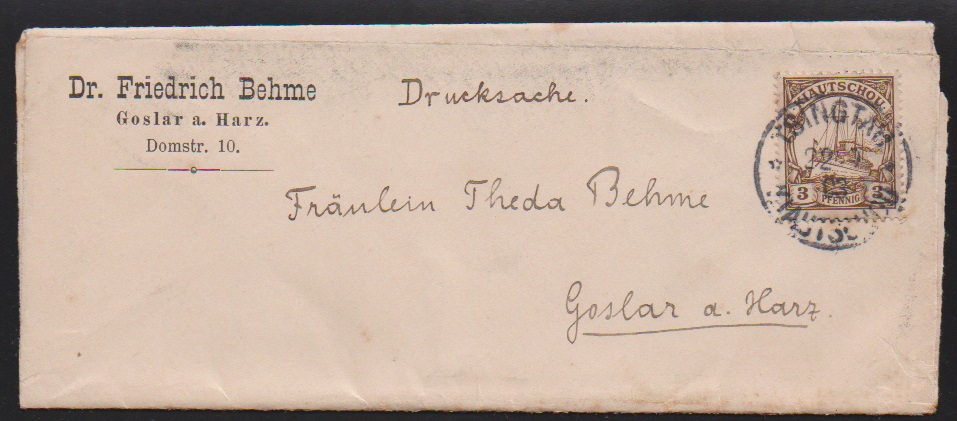 Dr. Friedrich Behme
Goslar a. Harz.
Domstr. 10.
Drucksache.
Fräulein Theda Behme
Goslar a. Harz.
KIAUTSCHOU
3 PFENNIG 3
TSINGTAU